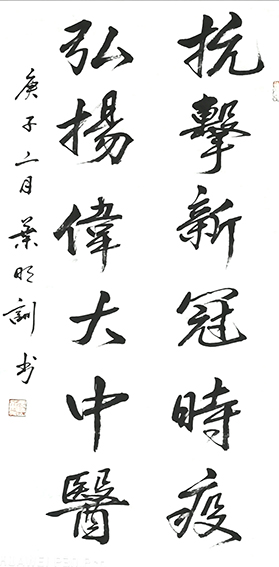 抗擊新冠時疫
弘揚偉大中醫
庚子二月葉明訓書